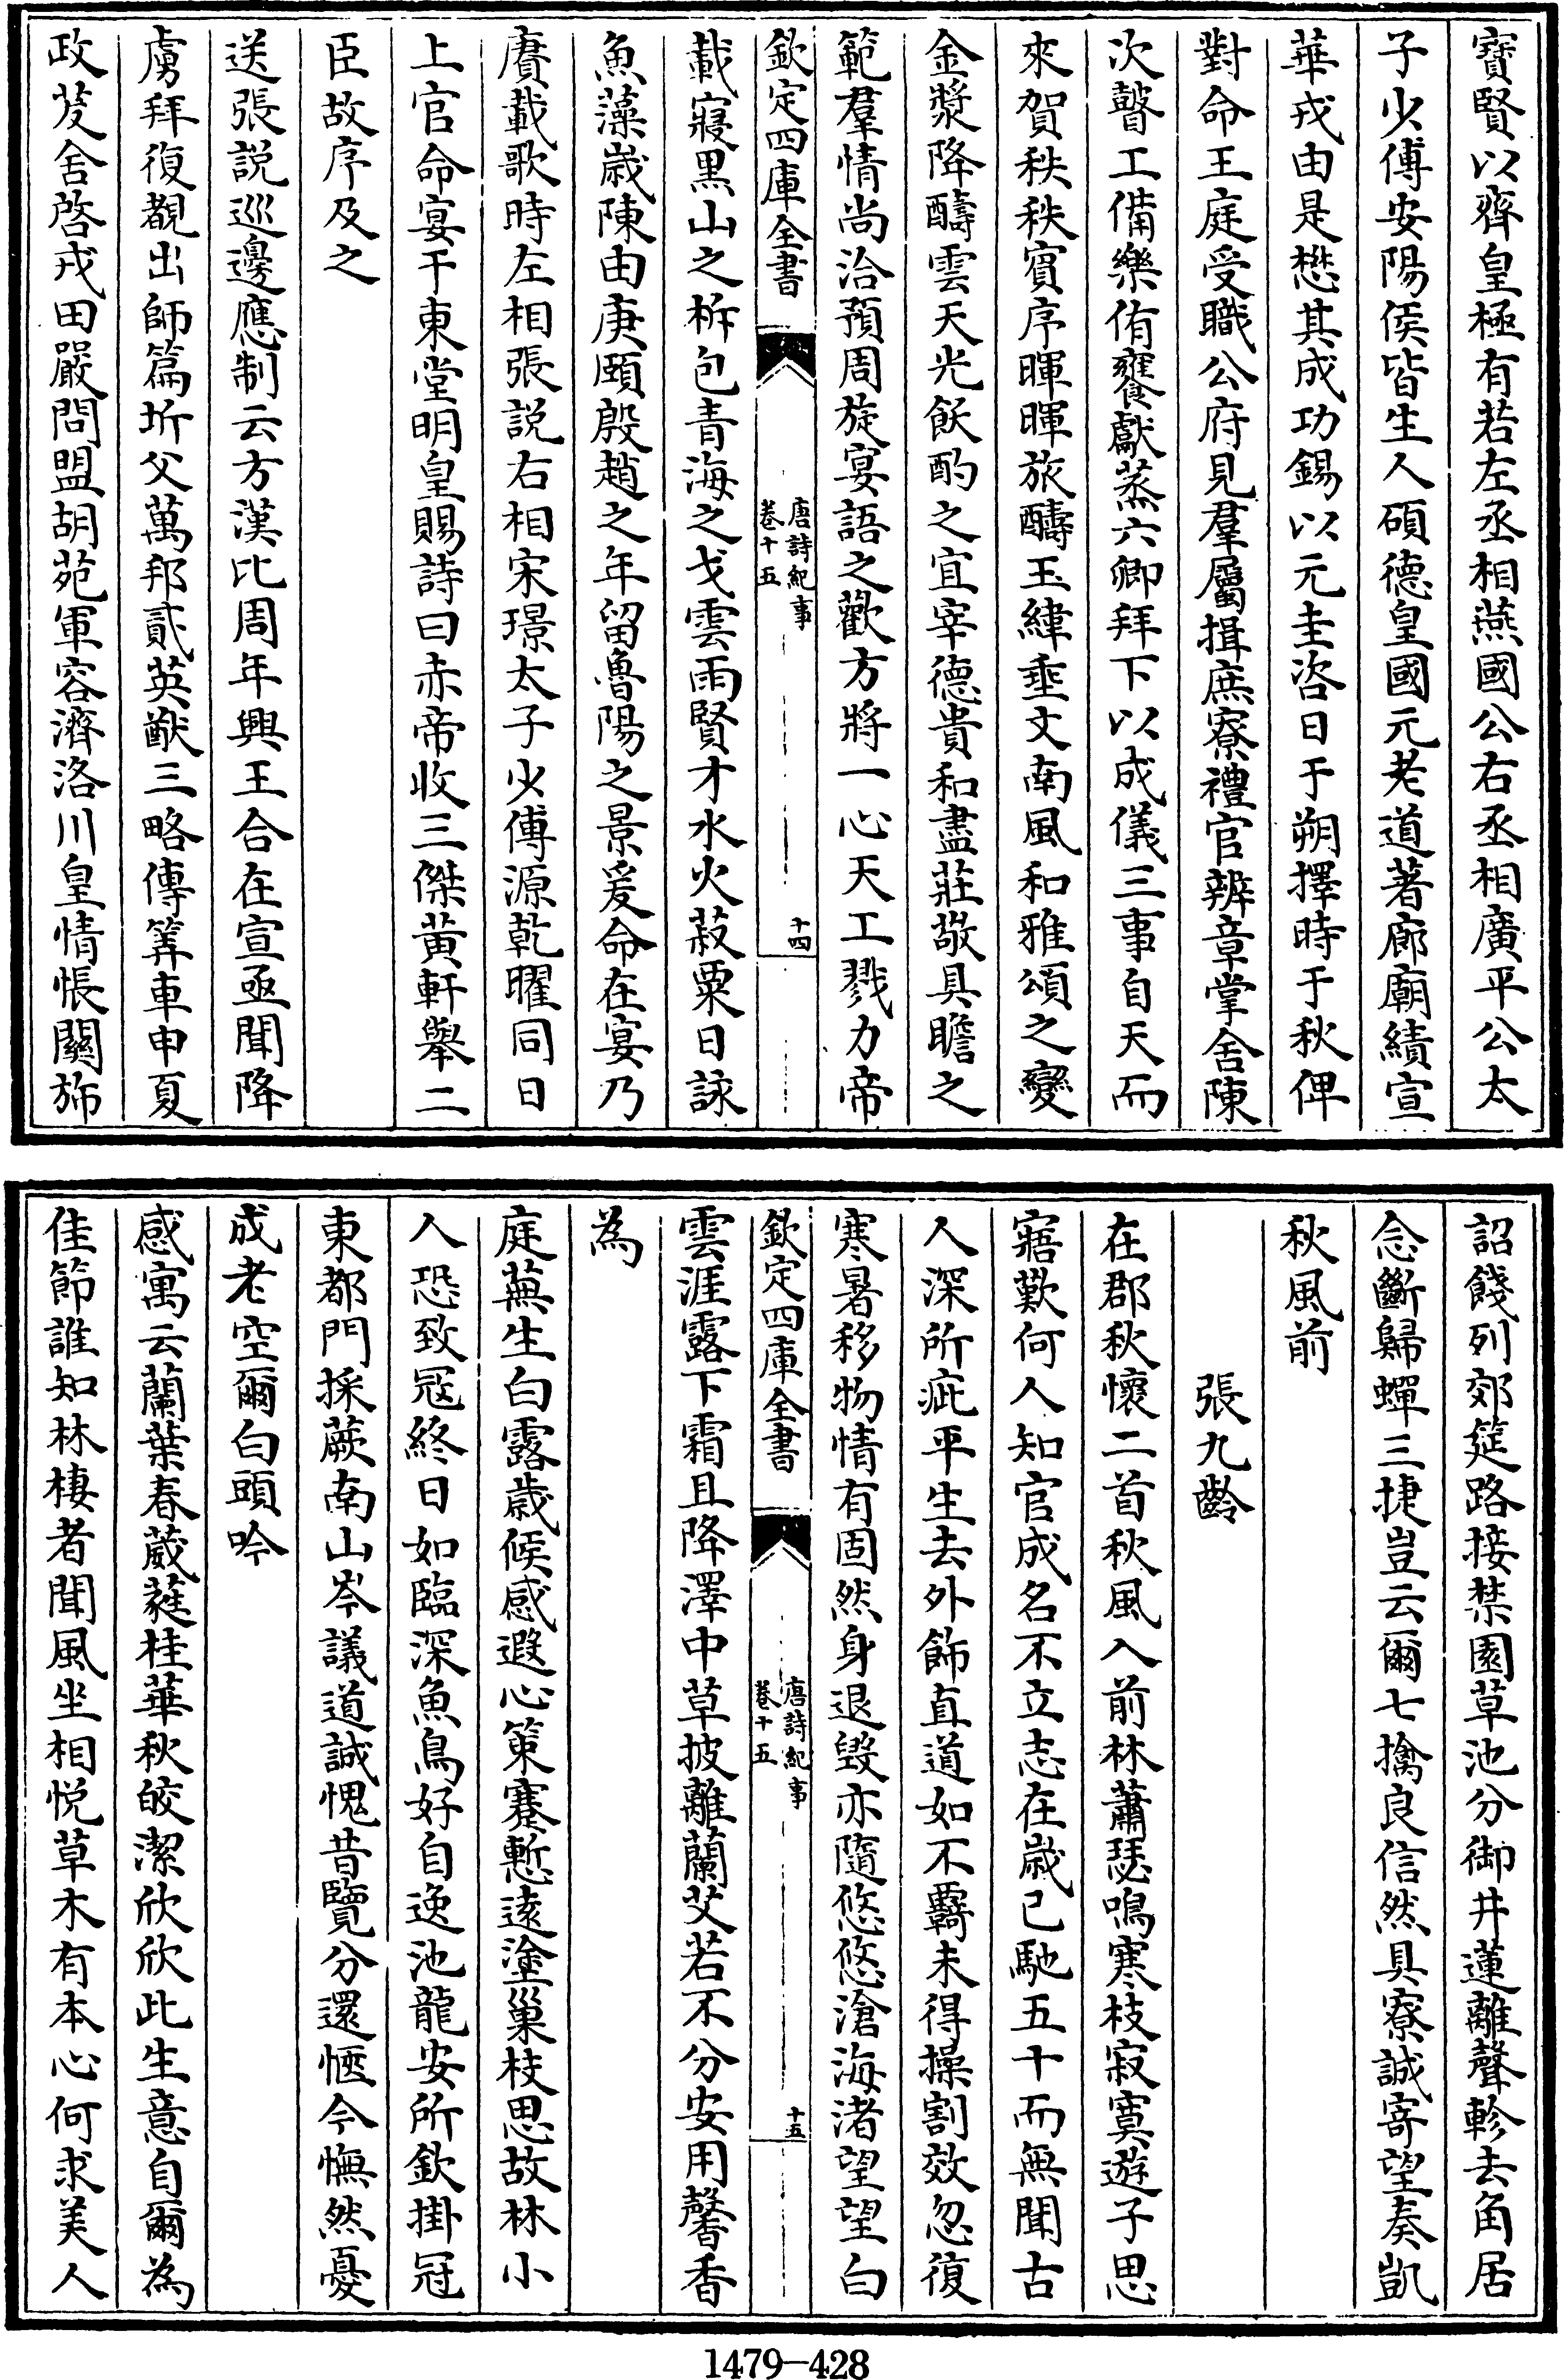 寳賢以齊皇極有若左丞相燕國公右丞相廣平公太
子少傅安陽侯皆生人碩德皇國元老道著廊廟績宣
華戎由是懋其成功錫以元圭咨日于朔擇時于秋俾
對命王庭受職公府見羣屬揖庶寮禮官辨章掌舍陳
次瞽工備樂侑饔獻蒸六卿拜下以成儀三事自天而
來賀秩秩賓序暉暉旅醻玉緯垂文南風和雅頌之變
金漿降醻雲天光飫酌之宜宰德貴和盡莊敬具瞻之
範羣情尚洽預周旋宴語之歡方將一心天工戮力帝
欽定四庫全書
唐詩紀事
卷十五
十四
載寢黒山之柝包青海之戈雲雨賢才水火菽粟日詠
魚藻嵗陳由庚頤殷趙之年留魯陽之景爰命在宴乃
賡載歌時左相張説右相宋璟太子少傅源乾曜同日
上官命宴于東堂明皇賜詩曰赤帝收三傑黄軒舉二
臣故序及之
送張説巡邊應制云方漢比周年興王合在宣亟聞降
虜拜復覩出師篇圻父萬邦貳英猷三略傳筭車申夏
政茇舍啓戎田嚴問盟胡苑軍容濟洛川皇情悵關斾
詔餞列郊筵路接禁園草池分御井蓮離聲軫去角居
念斷歸蟬三捷豈云爾七擒良信然具寮誠寄望奏凱
秋風前
張九齡
在郡秋懷二首秋風入前林蕭瑟鳴寒枝寂寞遊子思
寤歎何人知官成名不立志在嵗已馳五十而無聞古
人深所疵平生去外飾直道如不羇未得操割效忽復
寒暑移物情有固然身退毀亦隨悠悠滄海渚望望白
欽定四庫全書
唐詩紀事
卷十五
十五
雲涯露下霜且降澤中草披離蘭艾若不分安用馨香
為
庭蕪生白露歳候感遐心策蹇慙逺塗巢枝思故林小
人恐致冦終日如臨深魚鳥好自逸池龍安所欽掛冠
東都門採蕨南山岑議道誠愧昔覽分還愜今憮然憂
成老空爾白頭吟
感寓云蘭葉春葳蕤桂華秋皎潔欣欣此生意自爾為
佳節誰知林棲者聞風坐相悦草木有本心何求美人
1479—428